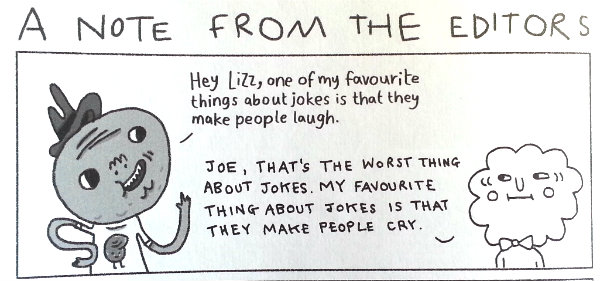 A NOTE FROM THE EDITORS
Hey Lizz, one of my favourite
things about jokes is that they
make people laugh.
JOE, THAT'S THE WORST THING
ABOUT JOKES. MY FAVOURITE
THING ABOUT JOKES IS THAT
THEY MAKE PEOPLE CRY.